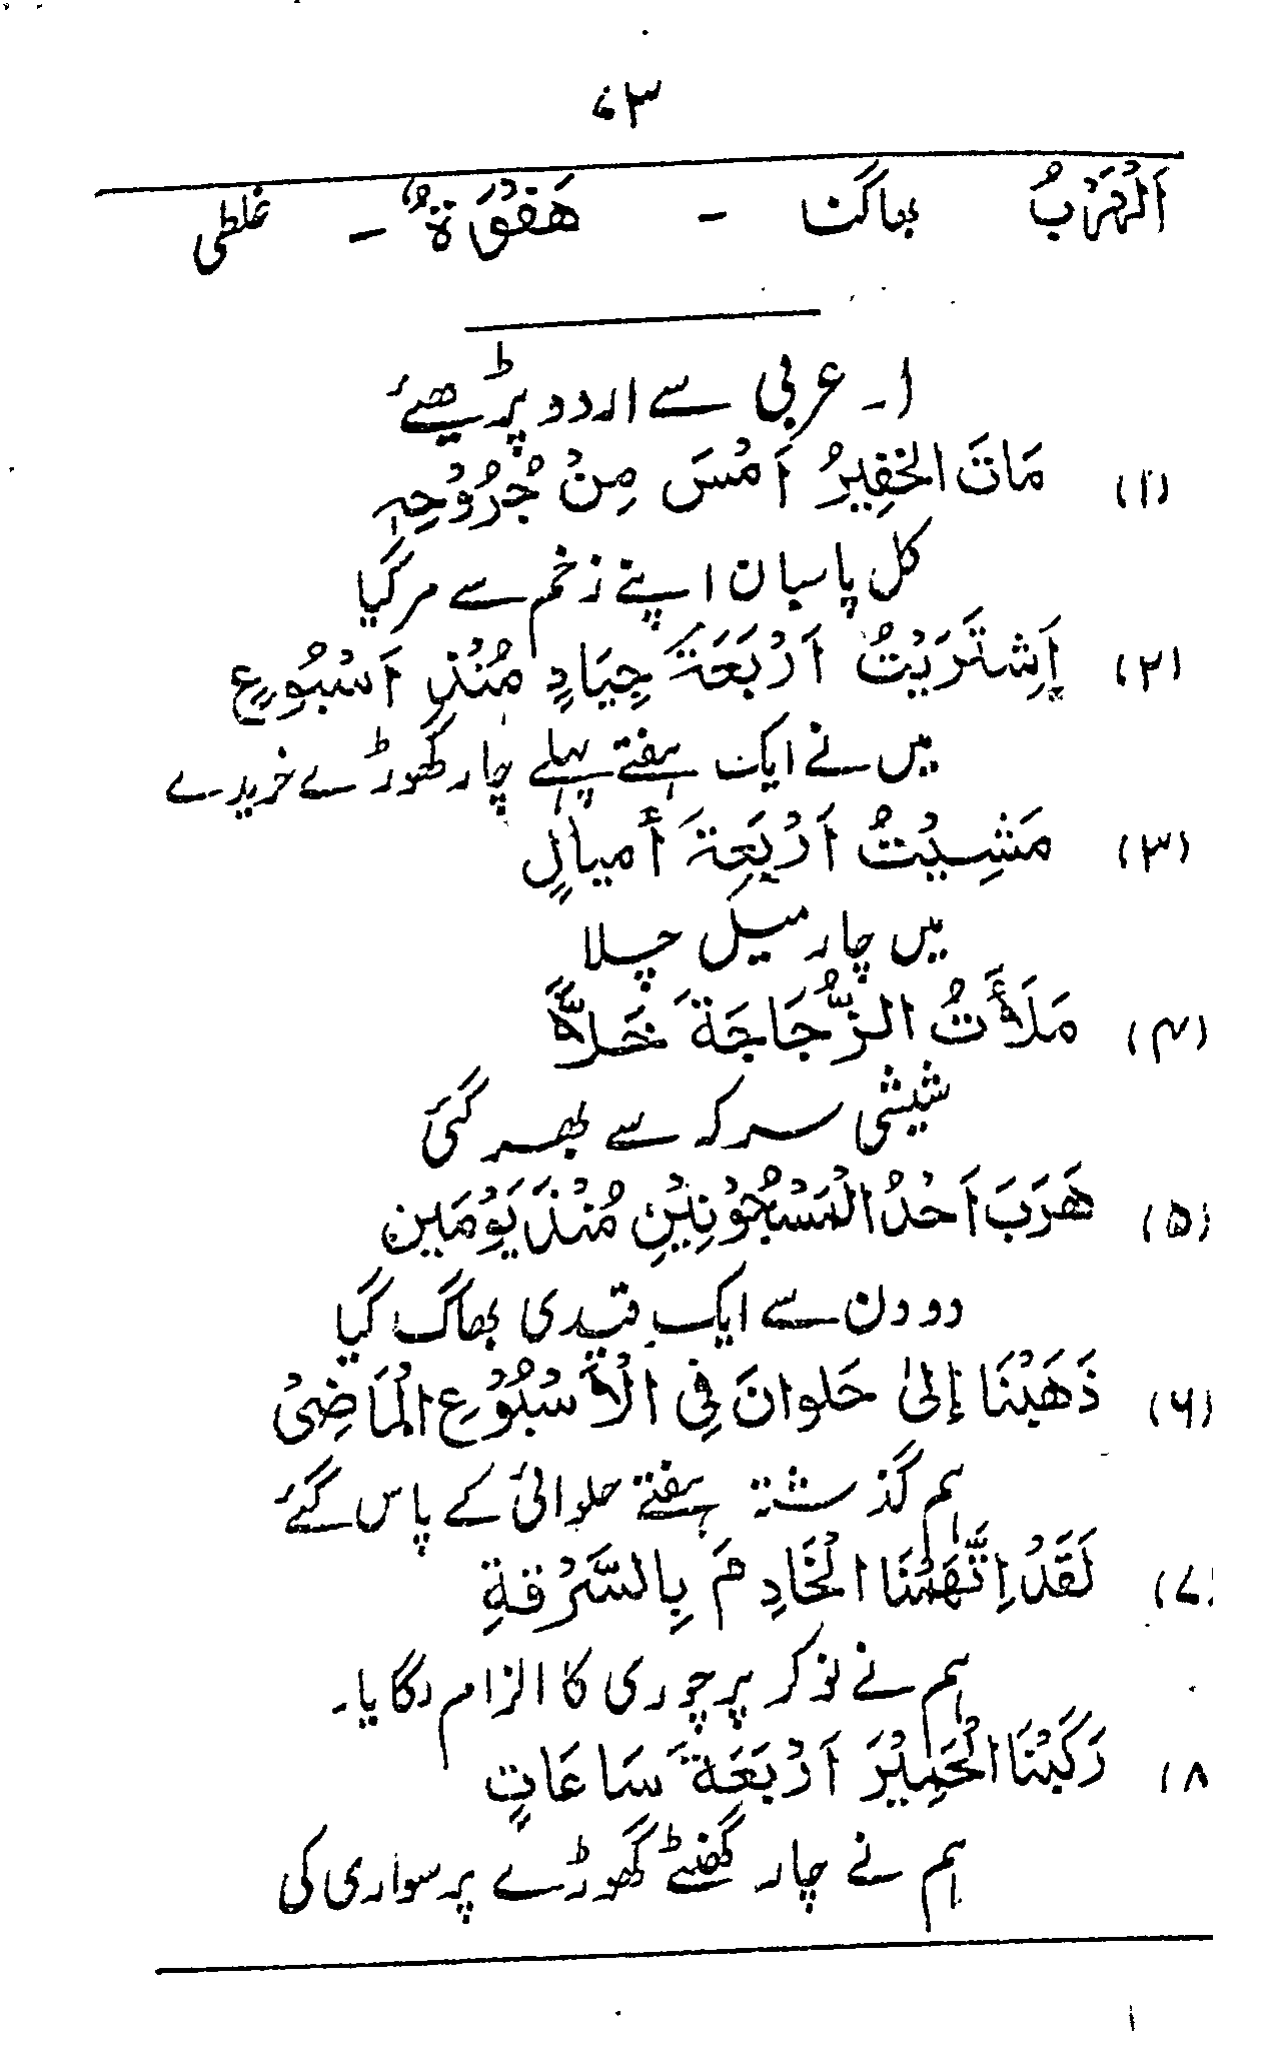 ۷۳
اَلْهَرْبُ بھاگنا - هَفْوَةٌ - غلطی
۱۔ عربی سے اردو پڑھئے
(۱) مَاتَ الخَفِیرُ اَمْسَ مِنْ جُرُوْحِہٖ
کل پاسبان اپنے زخم سے مرگیا
(۲) اَشِتَرَیْتُ اَرْبَعَةَ جِیَادٍ مُنْذِ اَسْبُوعٍ
میں نے ایک ہفتے پہلے چار گھوڑے خریدے
(۳) مَشِیْتُ اَرْبَعِةَ أَمیالٍ
میں چار میل چلا
(۴) مَلَأْتُ الزُّجَاجَةَ خَلاًّ
شیشی سرکہ سے بھر گئی
(۵) هَرَبَ اَحْدُ الْمَسْجُوْنِیْنِ مُنْذَ یَوْمَین
دو دن سے ایک قیدی بھاگ گیا
(۶) ذَهَبْنَا إلیٰ حَلوانَ فِی الْأَسْبُوْعِ الْمَاضِیْ
ہم گذشتہ ہفتے حلوائی کے پاس گئے
(۷) لَقَدْ اِتَّهَمْنَا الْخَادِمَ بِالسَّرْقةِ
ہم نے نوکر پر چوری کا الزام لگایا۔
(۸) رَکَبْنَا الْحَمِیْرَ اَرْبَعَةَ سَاعَاتٍ
ہم نے چار گھنٹے گھوڑے پر سواری کی